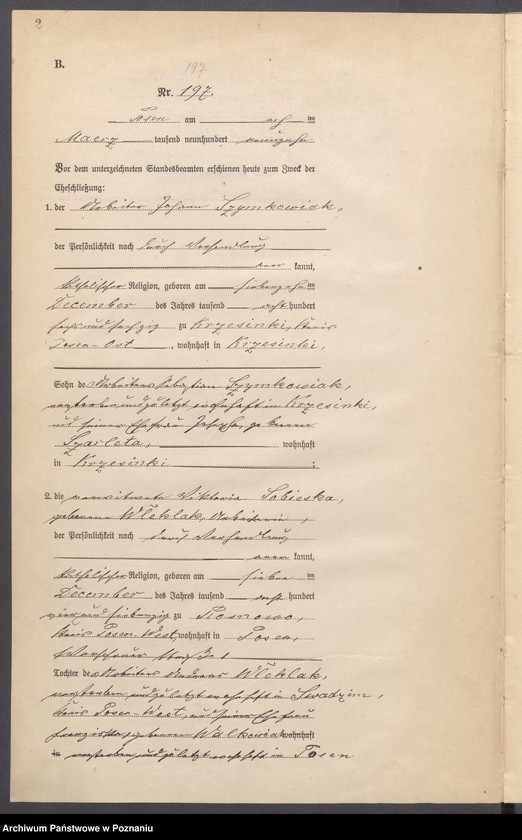 2
B.
197
Nr. 197.
Posen am acht ten
Maerz tausend neunhundert neunzehn
Vor dem unterzeichneten Standesbeamten erschienen heute zum Zweck der
Eheschließung:
1. der Arbeiter Johann Szymkowiak,
der Persönlichkeit nach durch Verhandlung
aner kannt,
katholischer Religion, geboren am siebenzehn ten
December des Jahres tausend acht hundert
sechsundsechzig zu Krzesinki, Kreis
Posen-Ost, wohnhaft in Krzesinki,
Sohn des Arbeiters Sebastian Szymkowiak,
verstorben und zuletzt wohnhaft in Krzesinki,
und seiner Ehefrau Josepha, geborenen
Szarleta, wohnhaft
in Krzesinki ;
2. die verwitwete Viktoria Sobieska,
geborene Wleklak, Arbeiterin,
der Persönlichkeit nach durch Verhandlung
aner kannt,
katholischer Religion, geboren am sieben ten
December des Jahres tausend acht hundert
vierundsiebenzig zu Rosnowo,
Kreis Posen-West, wohnhaft in Posen,
Warschauer
Tochter des Arbeiters Andreas Wleklak,
verstorben und zuletzt wohnhaft in Swadzim,
Kreis Posen-West, und seiner Ehefrau
Franziska, geborenen Walkowiak wohnhaft
in verstorben und zuletzt wohnhaft in Posen
Archiwum Państwowe w Poznaniu